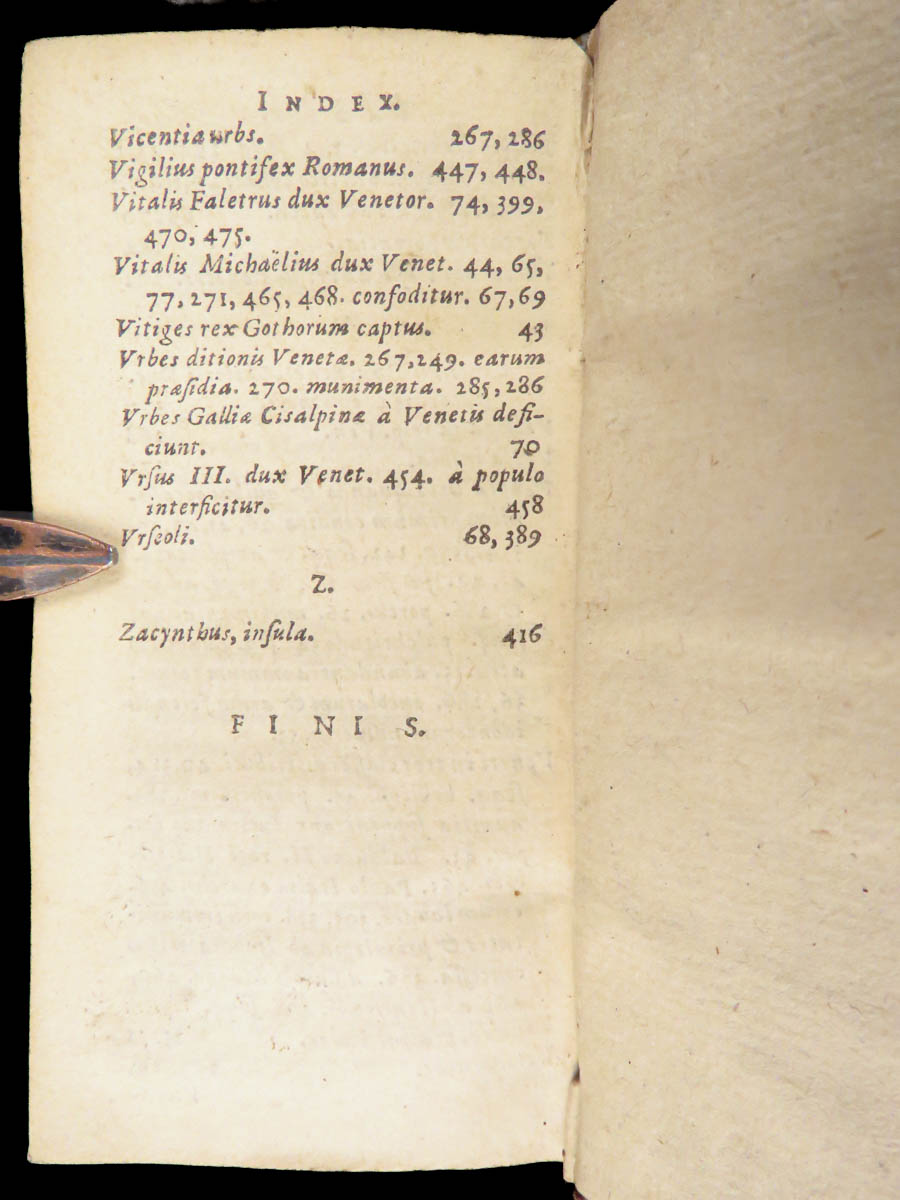 INDEX.
Vicentia urbs. 267, 286
Vigilius pontifex Romanus. 447, 448.
Vitalis Faletrus dux Venetor. 74, 399,
470, 475.
Vitalis Michaëlius dux Venet. 44, 65,
77, 271, 465, 468. confoditur. 67, 69
Vitiges rex Gothorum captus. 43
Vrbes ditionis Venetæ. 267, 249. earum
præſidia. 270. munimenta. 285, 286
Vrbes Galliæ Cisalpinæ à Venetis defi-
ciunt. 70
Vrſus III. dux Venet. 454. à populo
interficitur. 458
Vrſeoli. 68, 389
Z.
Zacynthus, inſula. 416
FINIS.